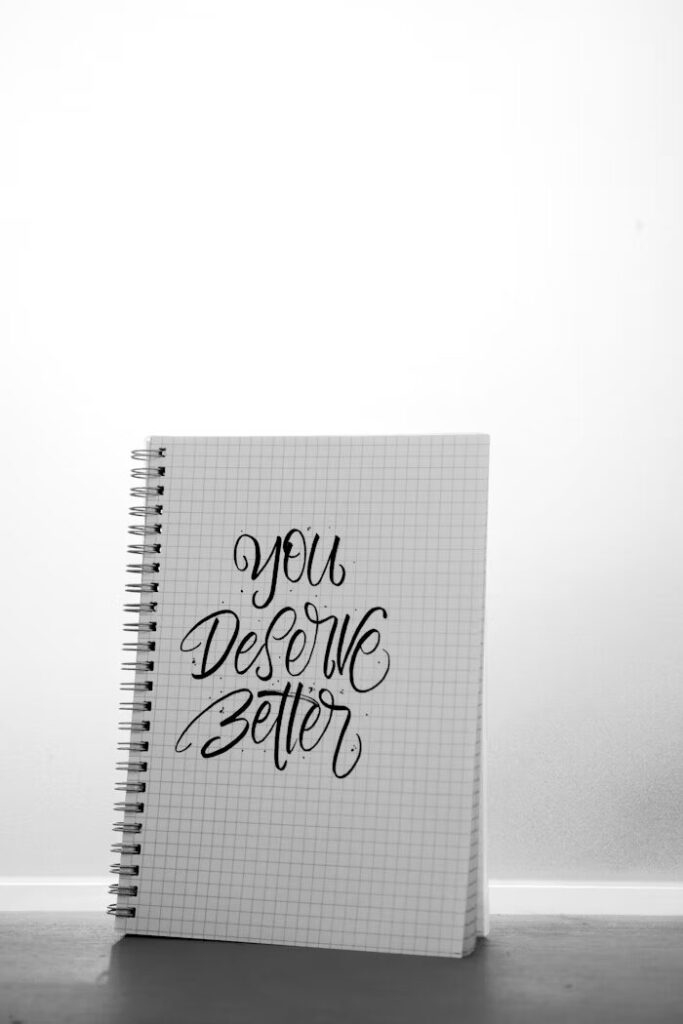 You
Deserve
Better